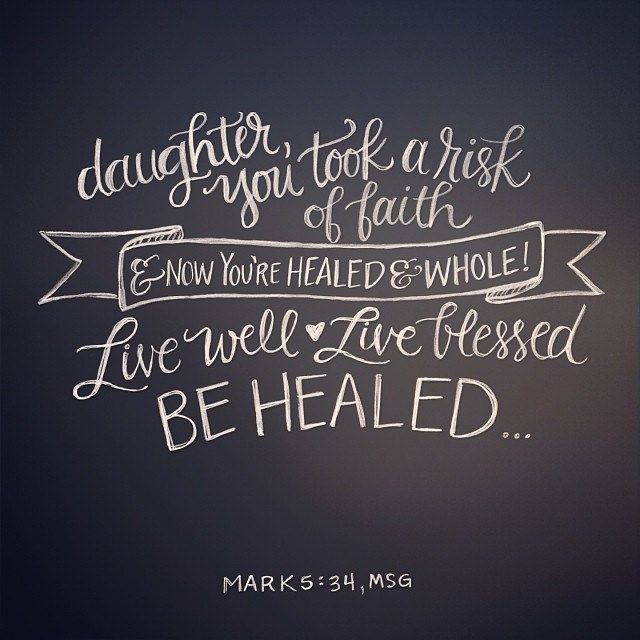 daughter, you took a risk
of faith
& NOW YOU'RE HEALED & WHOLE!
Live well ♥ Live blessed
BE HEALED...
MARK 5:34, MSG